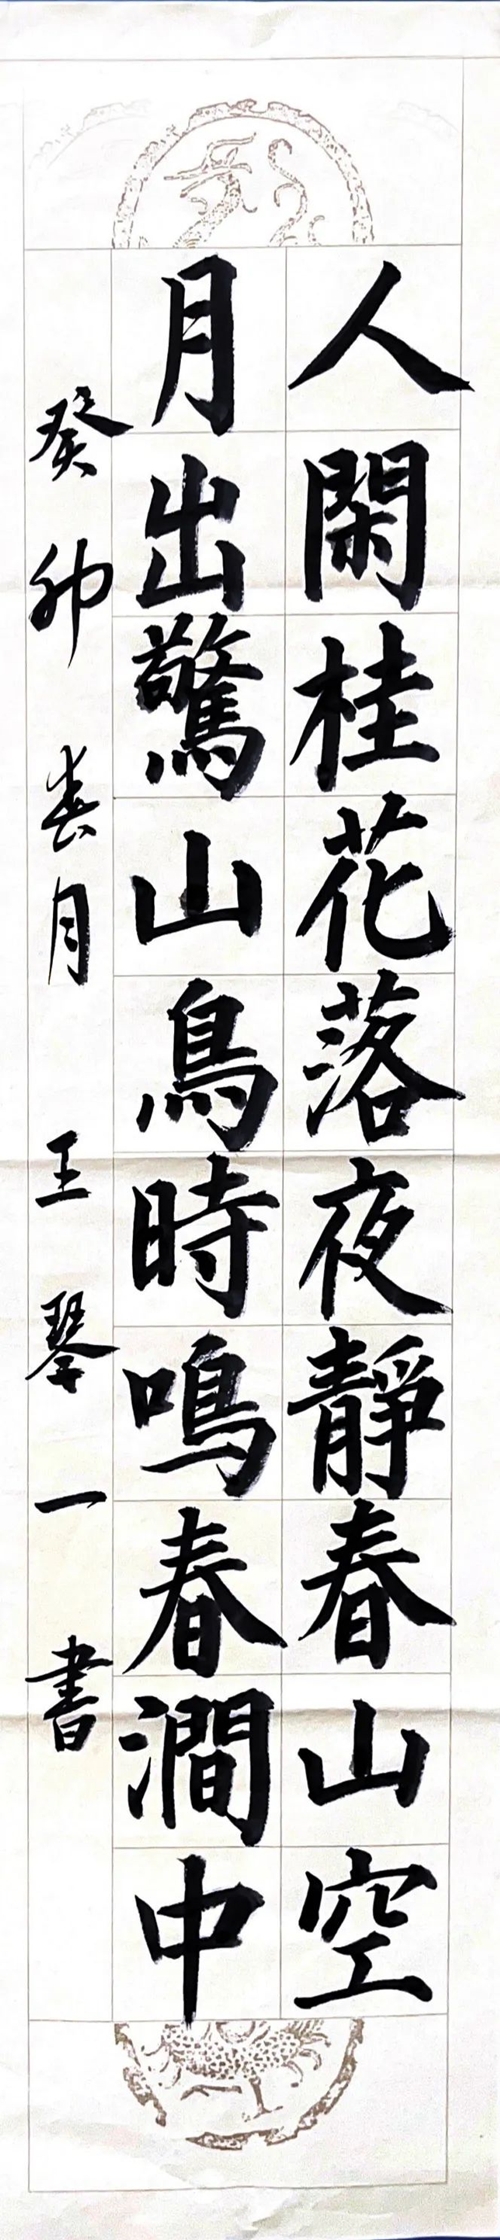 人閑桂花落夜靜春山空
月出驚山鳥時鳴春澗中
癸卯春月王琴一書